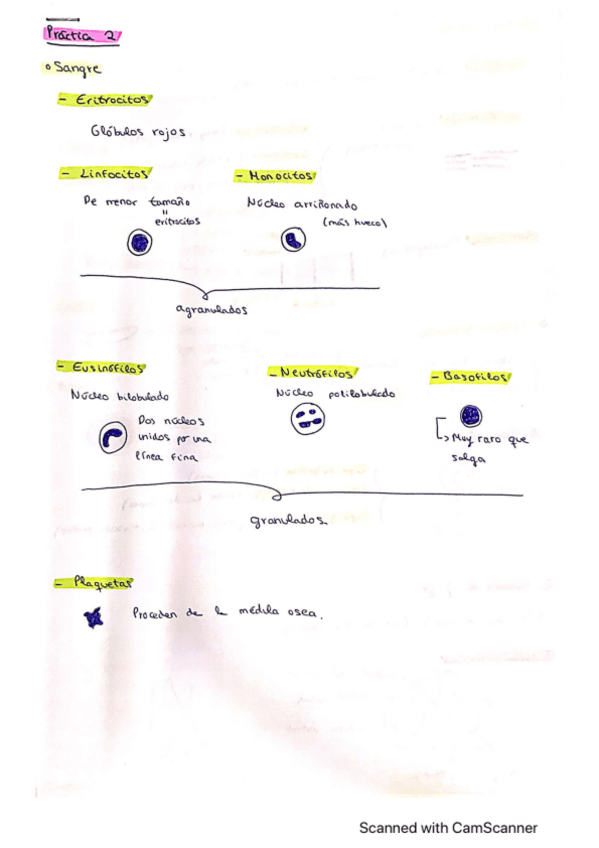 Práctica 2
o Sangre
- Eritrocitos
Glóbulos rojos
- Linfocitos
- Monocitos
De menor tamaño
=
eritrocitos
Núcleo arriñonado
(más hueco)
agranulados
- Eusinófilos
- Neutrófilos
- Basofilos
Núcleo bilobulado
Dos núcleos
unidos por una
línea fina
Núcleo polilobulado
Muy raro que
salga
granulados
- Plaquetas
Proceden de la médula osea.
Scanned with CamScanner